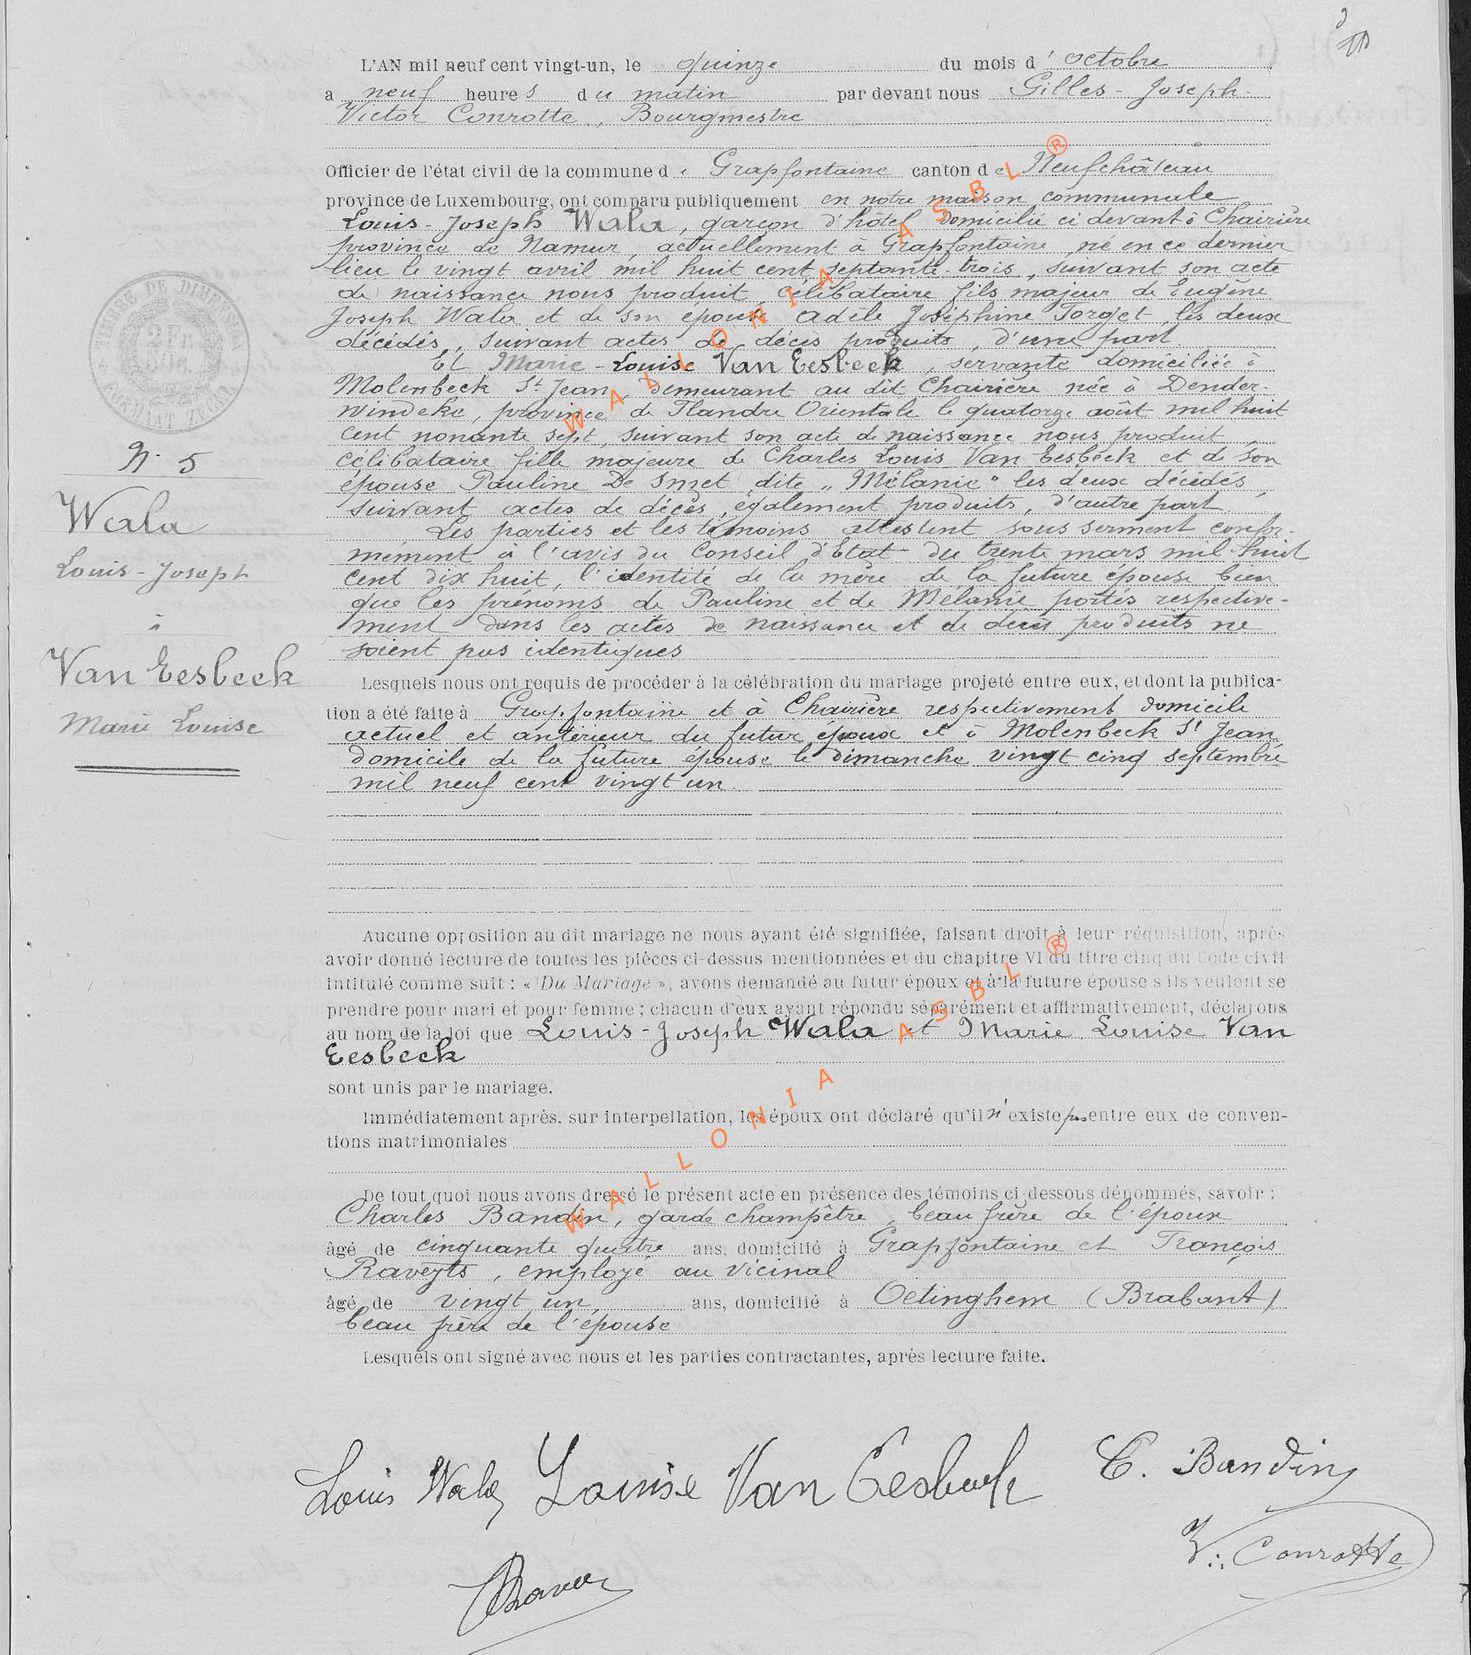 L'AN mil neuf cent vingt-un, le quinze du mois d'octobre
a neuf heures du matin par devant nous Gilles-Joseph-
Victor Conrotte, Bourgmestre
Officier de l'état civil de la commune de Grapfontaine canton de Neufchâteau
province de Luxembourg, ont comparu publiquement en notre maison communale
Louis-Joseph Wala, garçon d'hôtel domicilié ci devant à Chairière
province de Namur, actuellement à Grapfontaine, né en ce dernier
lieu le vingt avril mil huit cent septante-trois, suivant son acte
de naissance nous produit, célibataire fils majeur de Eugène
Joseph Wala et de son épouse Adèle Joséphine Forget les deux
décédés, suivant actes de décès produits, d'une part.
Et Marie-Louise Van Eesbeek, servante domiciliée à
Molenbeek St Jean demeurant au dit Chairière née à Dender-
windeke, province de Flandre Orientale le quatorze août mil huit
cent nonante sept, suivant son acte de naissance nous produit
célibataire fille majeure de Charles Louis Van Eesbeek et de son
épouse Pauline De Smet dite „Mélanie" les deux décédés,
suivant actes de décès, également produits, d'autre part
Les parties et les témoins attestent sous serment confor-
mément à l'avis du Conseil d'Etat du trente mars mil huit
cent dix huit, l'identité de la mère de la future épouse bien
que les prénoms de Pauline et de Mélanie portés respective-
ment dans les actes de naissance et de décès produits ne
soient pas identiques
N. 5
Wala
Louis-Joseph
à
Van Eesbeek
Marie Louise
Lesquels nous ont requis de procéder à la célébration du mariage projeté entre eux, et dont la publica-
tion a été faite à Grapfontaine et à Chairière respectivement domicile
actuel et antérieur du futur époux et à Molenbeek St Jean
domicile de la future épouse le dimanche vingt cinq septembre
mil neuf cent vingt un.
Aucune opposition au dit mariage ne nous ayant été signifiée, faisant droit à leur réquisition, après
avoir donné lecture de toutes les pièces ci-dessus mentionnées et du chapitre VI du titre cinq du Code civil
intitulé comme suit : « Du Mariage », avons demandé au futur époux et à la future épouse s'ils veulent se
prendre pour mari et pour femme ; chacun d'eux ayant répondu séparément et affirmativement, déclarons
au nom de la loi que Louis-Joseph Wala et Marie Louise Van
Eesbeek
sont unis par le mariage.
Immédiatement après, sur interpellation, les époux ont déclaré qu'il n'existe pas entre eux de conven-
tions matrimoniales
De tout quoi nous avons dressé le présent acte en présence des témoins ci-dessous dénommés, savoir :
Charles Bandin, garde champêtre, beau frère de l'époux
âgé de cinquante quatre ans, domicilié à Grapfontaine et François
Raveyts, employé au vicinal
âgé de vingt un, ans, domicilié à Oetinghem (Brabant)
beau frère de l'épouse
Lesquels ont signé avec nous et les parties contractantes, après lecture faite.
Louis Wala Louise Van Eesbeek C. Bandin
V. Conrotte
WALLONIA ASBL ®
WALLONIA ASBL ®